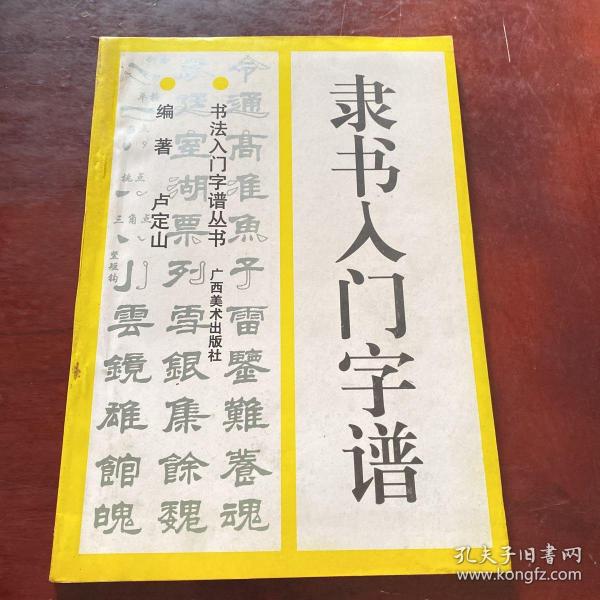 隶书入门字谱
书法入门字谱丛书
广西美术出版社
编著 卢定山
令通高准鱼子雷鑒難養魂
湖票列雪銀集餘魏
挑点
三角点
竖短钩
小雲鏡雄館魄
孔夫子旧书网
www.kongfz.com